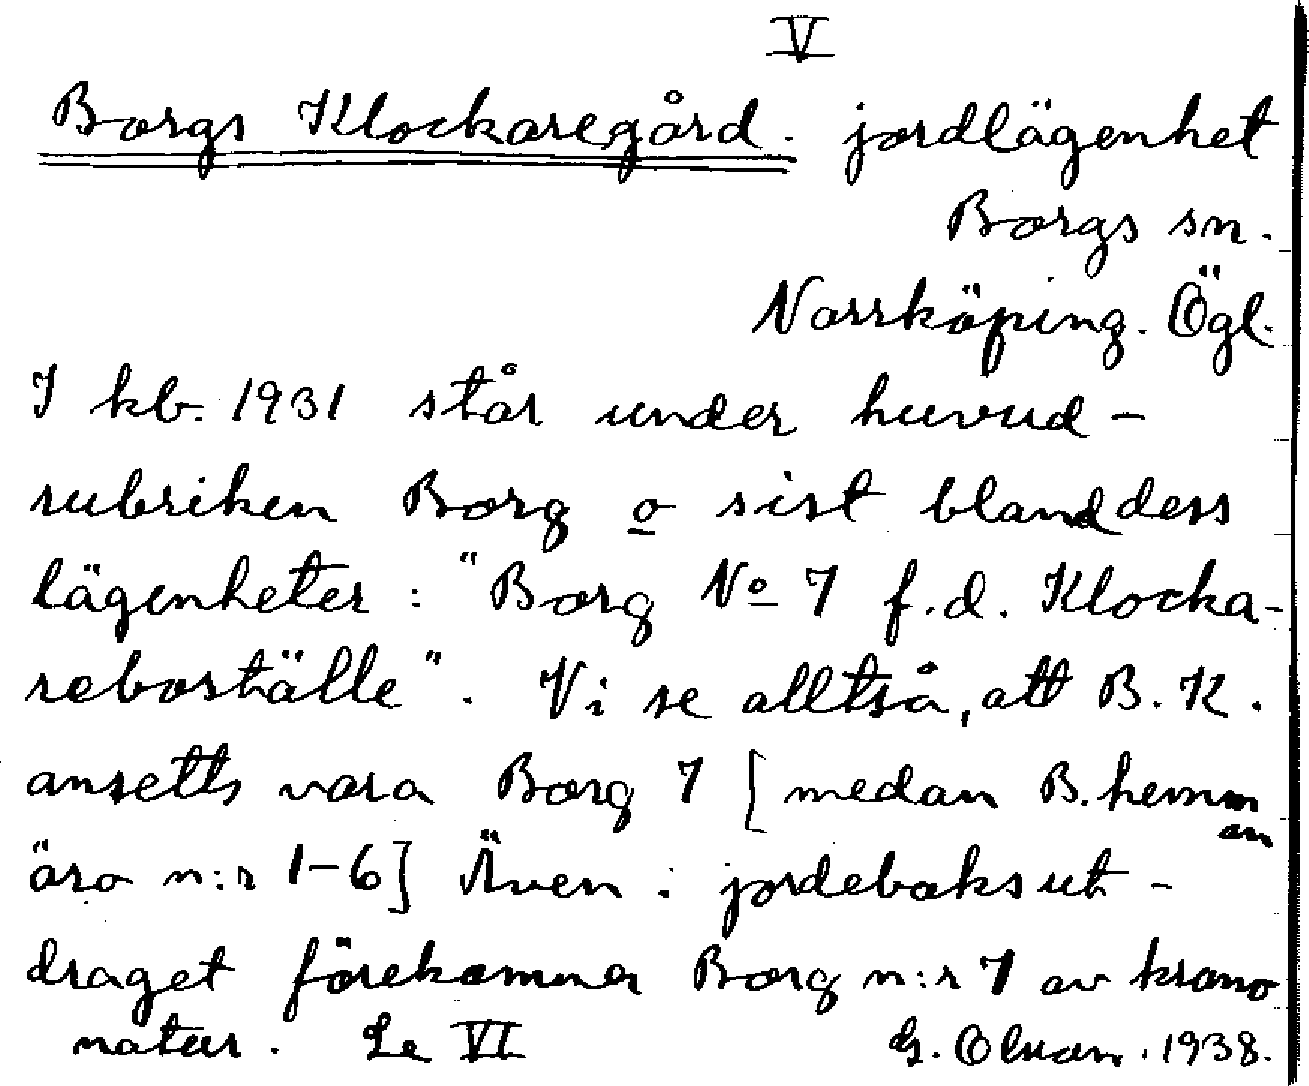 V
Borgs Klockaregård. jordlägenhet
Borgs sn.
Norrköping. Ögl.
I kb. 1931 står under huvud-
rubriken Borg o sist bland dess
lägenheter: "Borg No 7 f.d. Klocka-
reboställe". Vi se alltså, att B. K.
ansetts vara Borg 7 [medan B. hemm
an
äro n:r 1-6] Även i jordeboksut-
draget förekommer Borg n:r 7 av krono
natur. Se VI
G. Olson. 1938.